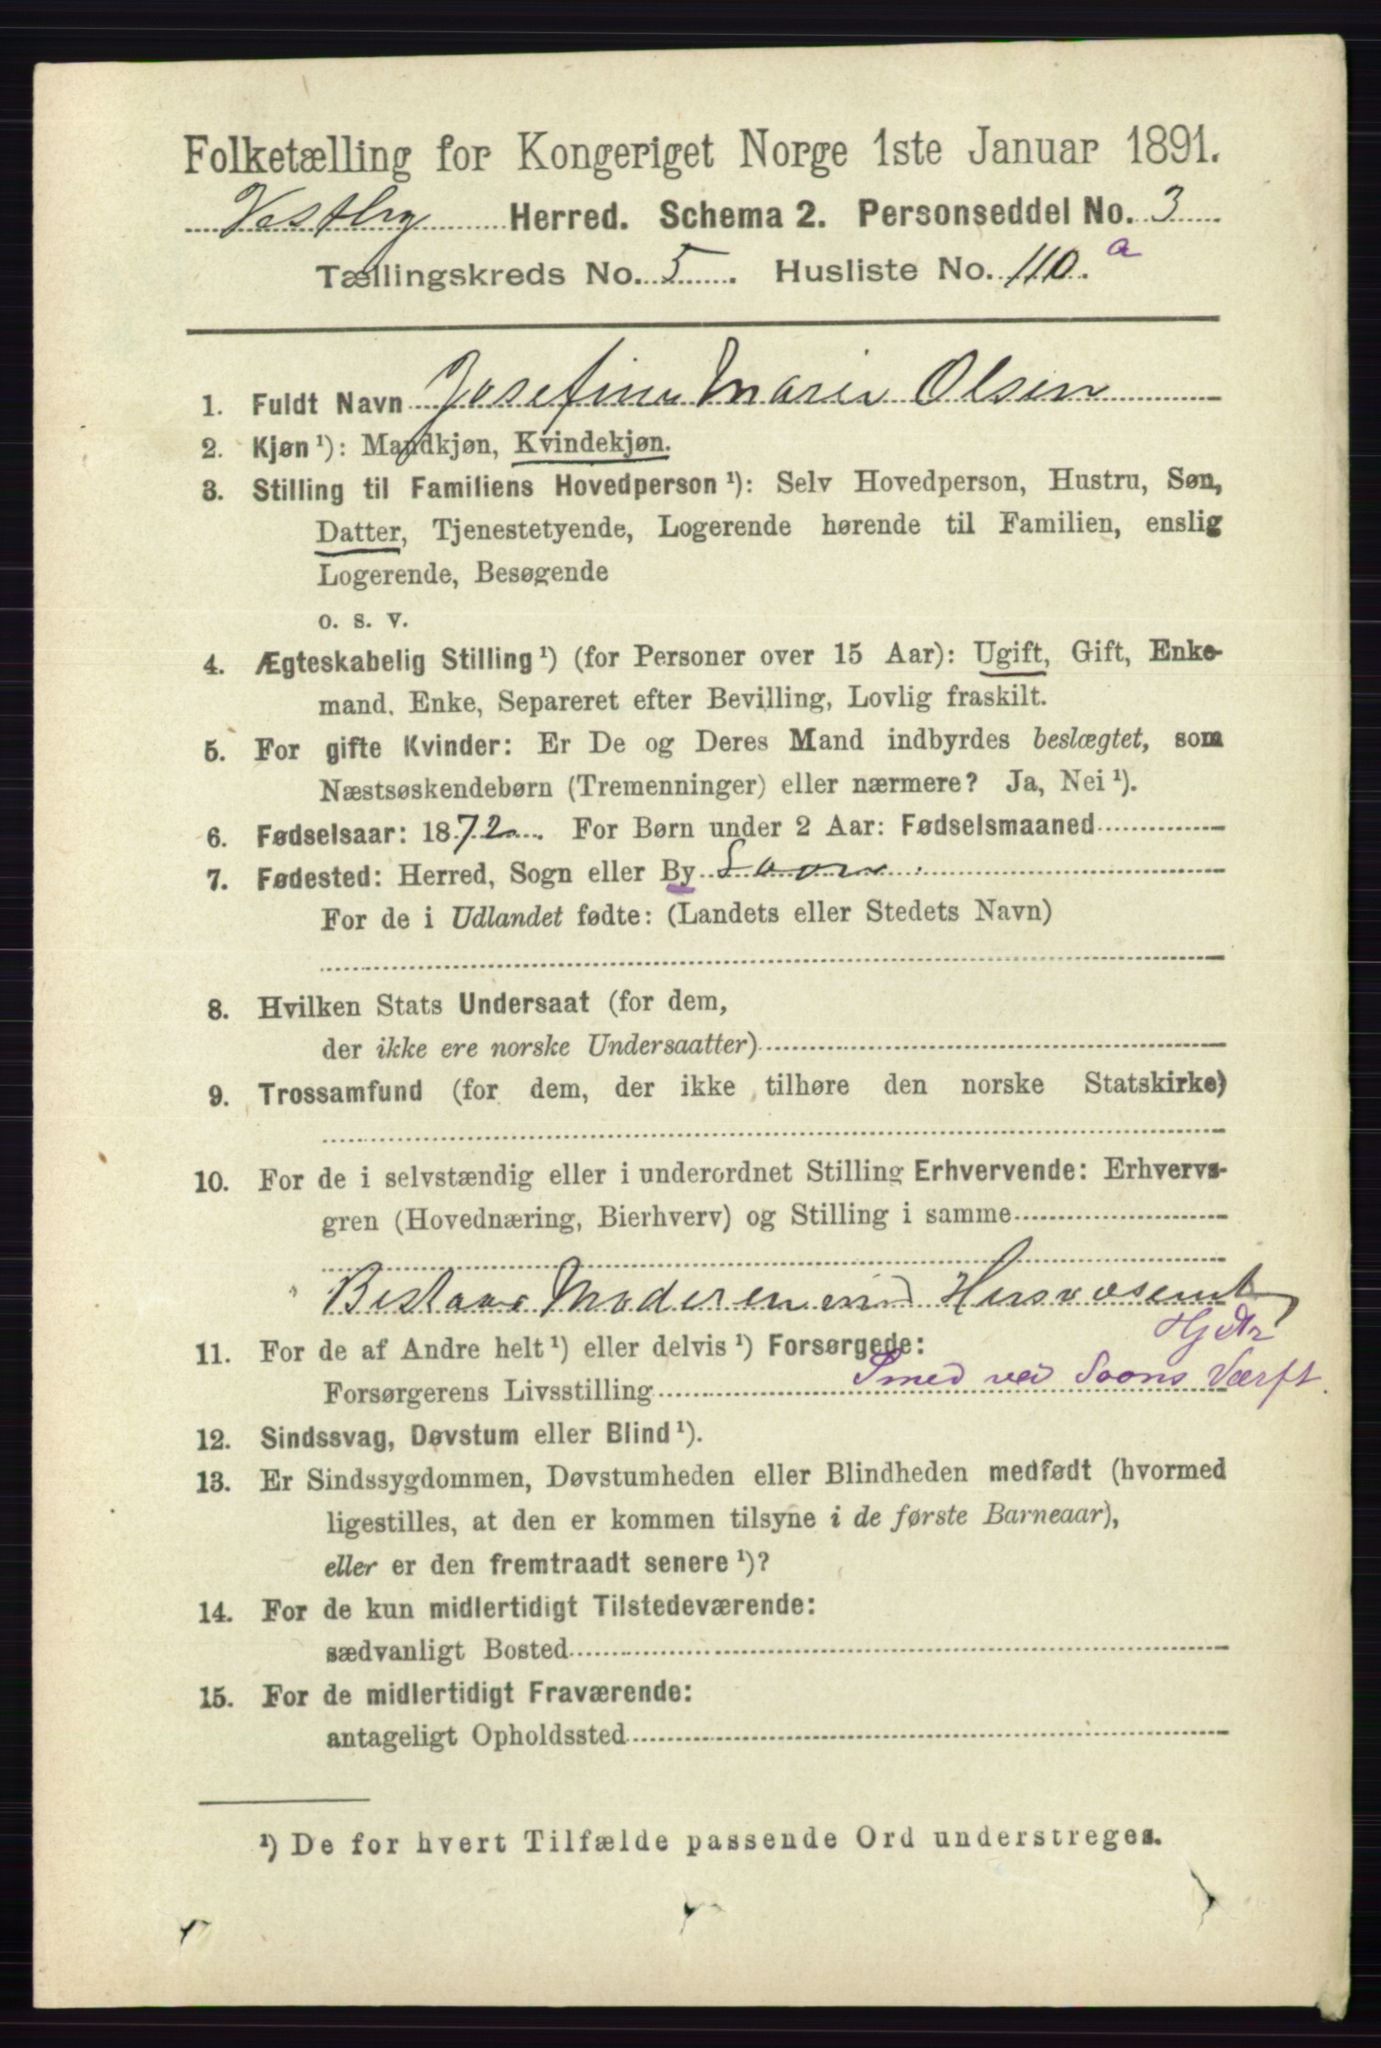 Folketælling for Kongeriget Norge 1ste Januar 1891.
Vestby Herred. Schema 2. Personseddel No. 3
Tællingskreds No. 5. Husliste No. 110.a
1. Fuldt Navn Josefine Marie Olsen
2. Kjøn ¹): Mandkjøn, Kvindekjøn.
3. Stilling til Familiens Hovedperson ¹): Selv Hovedperson, Hustru, Søn,
Datter, Tjenestetyende, Logerende hørende til Familien, enslig
Logerende, Besøgende
o. s. v.
4. Ægteskabelig Stilling ¹) (for Personer over 15 Aar): Ugift, Gift, Enke-
mand. Enke, Separeret efter Bevilling, Lovlig fraskilt.
5. For gifte Kvinder: Er De og Deres Mand indbyrdes beslægtet, som
Næstsøskendebørn (Tremenninger) eller nærmere? Ja, Nei ¹).
6. Fødselsaar: 1872. For Børn under 2 Aar: Fødselsmaaned
7. Fødested: Herred, Sogn eller By Soon
For de i Udlandet fødte: (Landets eller Stedets Navn)
8. Hvilken Stats Undersaat (for dem,
der ikke ere norske Undersaatter)
9. Trossamfund (for dem, der ikke tilhøre den norske Statskirke)
10. For de i selvstændig eller i underordnet Stilling Erhvervende: Erhvervs-
gren (Hovednæring, Bierhverv) og Stilling i samme
Bistaar Moderen med Husvæsenet
Hjdtr
11. For de af Andre helt ¹) eller delvis ¹) Forsørgede:
Forsørgerens Livsstilling Smed ved Soons Værft.
12. Sindssvag, Døvstum eller Blind ¹).
13. Er Sindssygdommen, Døvstumheden eller Blindheden medfødt (hvormed
ligestilles, at den er kommen tilsyne i de første Barneaar),
eller er den fremtraadt senere ¹)?
14. For de kun midlertidigt Tilstedeværende:
sædvanligt Bosted
15. For de midlertidigt Fraværende:
antageligt Opholdssted
¹) De for hvert Tilfælde passende Ord understreges.